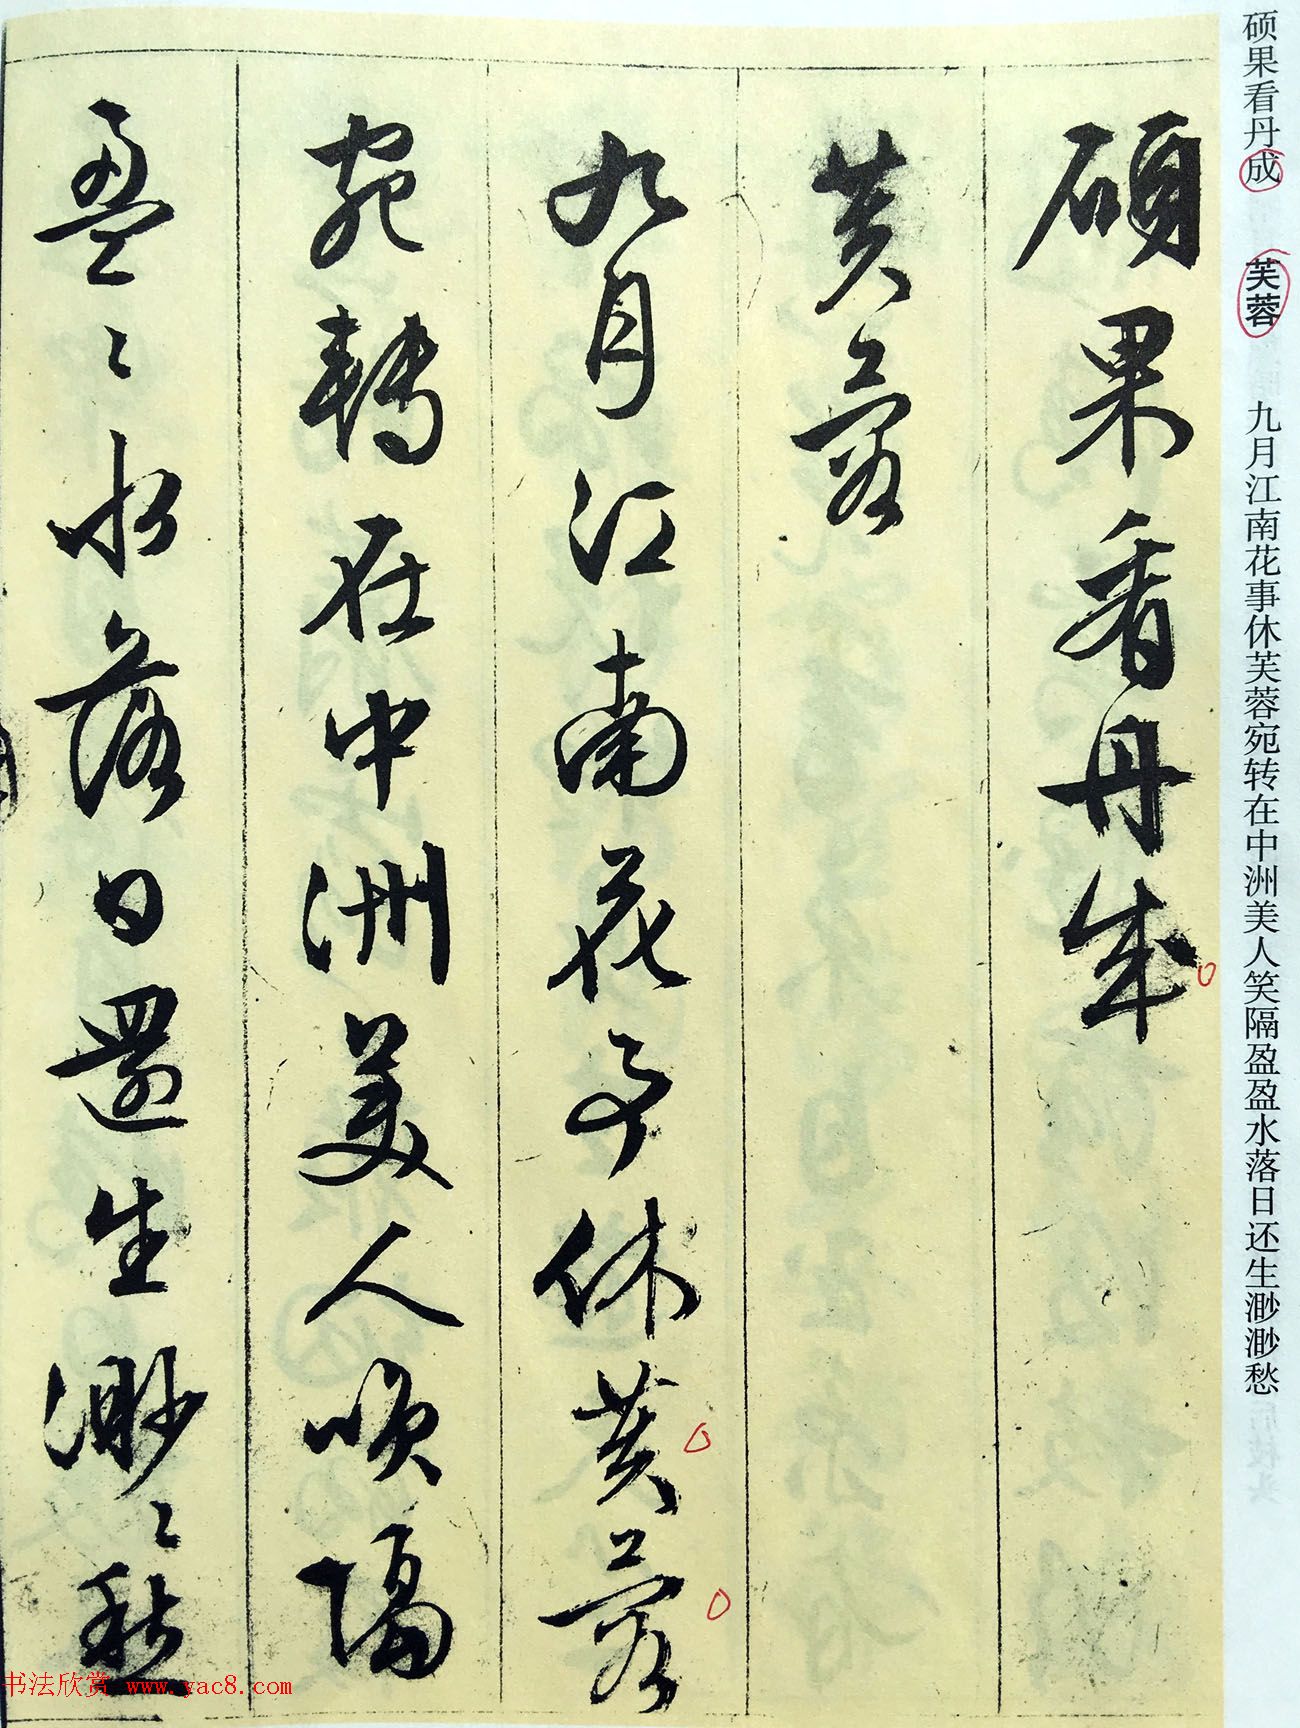 硕果看丹成 芙蓉 九月江南花事休芙蓉宛转在中洲美人笑隔盈盈水落日还生渺渺愁
碩果看丹成
芙蓉
九月江南花事休芙蓉
宛轉在中洲美人咲隔
盈〻水落日還生渺〻愁
书法欣赏 www.yac8.com